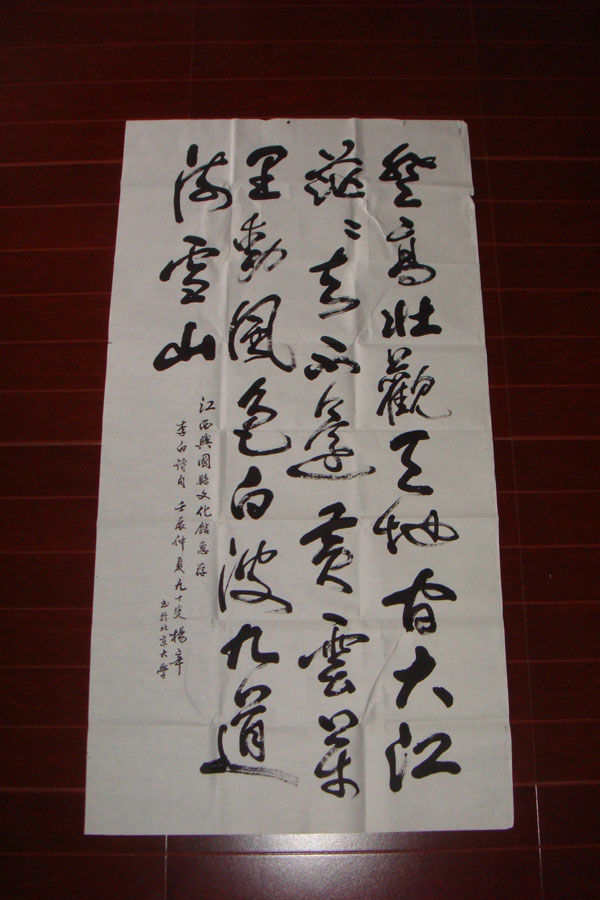 登高壯觀天地間大江
茫〻去不還黃雲萬
里動風色白波九道
流雪山
江西興國縣文化館惠存
李白詩句 壬辰仲夏九十叟楊辛
書於北京大學